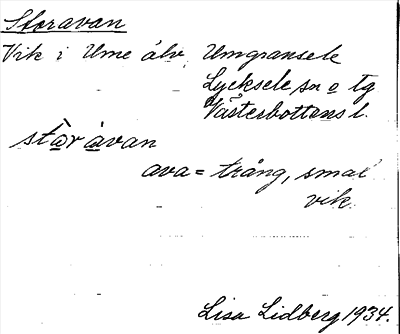 Storavan
Vik i Ume älv, Umgransele
Lycksele sn o tg
Västerbottens l.
stòr àvan
ava = trång, smal
vik
Lisa Lidberg 1934.